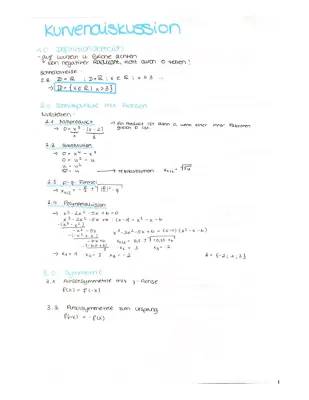 Kurvendiskussion
1.0 Definitionsbereich
- auf Wurzeln u. Brüche achten
* kein negativer Radikant, nicht durch 0 teilen!
Schreibweise
z.B. D = ℝ | D = {x ∈ ℝ | x > 3
→ D = {x ∈ ℝ | x > 3}
2.0 Schnittpunkte mit Achsen
Nullstellen:
2.1 Nullprodukt
→ ein Produkt ist dann 0, wenn einer ihrer Faktoren gleich 0 ist.
→ 0 = x³ · (x - 2)
2.2 Substitution
→ 0 = x⁴ - x²
0 = u² - u
u = x²
→ Resubstitution
2.3 p-q Formel
→ x₁/₂ = - p/2 ± √((p/2)² - q)
2.4 Polynomdivision
→ x³ - 2x² - 5x + 6 = 0
x³ - 2x² - 5x + 6 : (x - 1) = x² - x - 6
-(x³ - x²)
-x² - 5x
-(-x² + x)
-6x + 6
-(-6x + 6)
x³ - 2x² - 5x + 6 = (x - 1) (x² - x - 6)
x₂ = 3 x₃ = -2
→ x₁ = 1 x₂ = 3 x₃ = -2
3.0 Symmetrie
3.1 Achsensymmetrie mit y-Achse
f(x) = f(-x)
3.2 Punktsymmetrie zum Ursprung
f(-x) = -f(x)
1